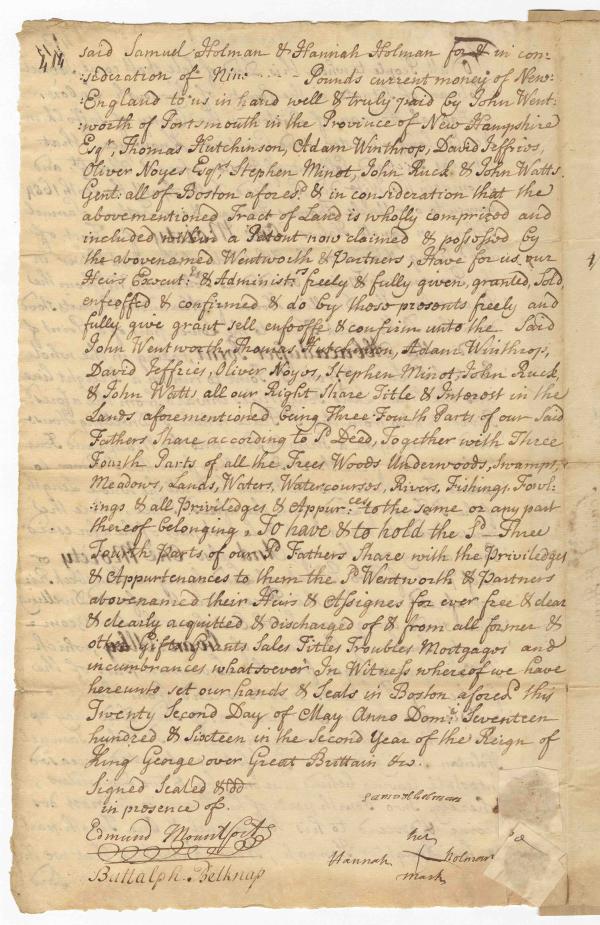 said Samuel Holman & Hannah Holman for & in con:
:sideration of Nine Pounds current money of New:
:England to us in hand well & truly paid by John Went:
:worth of Portsmouth in the Province of New Hampshire
Esqr, Thomas Hutchinson, Adam Winthrop, David Jeffries,
Oliver Noyes Esqrs, Stephen Minot, John Ruck & John Watts
Gent: all of Boston aforesd. & in consideration that the
abovementioned Tract of Land is wholly comprized and
included within a Patent now claimed & possessed by
the abovenamed Wentworth & Partners, Have for us, our
Heirs Execut.rs & Administ.rs freely & fully given, granted, Sold,
enfeoffed & confirmed & do by these presents freely and
fully give grant sell enfeoffe & confirm unto the Said
John Wentworth, Thomas Hutchinson, Adam Winthrop,
David Jeffries, Oliver Noyes, Stephen Minot, John Ruck
& John Watts all our Right Share Title & Interest in the
Lands aforementioned being Three Fourth Parts of our Said
Fathers Share according to sd Deed, Together with Three
Fourth Parts of all the Trees Woods Underwoods, Swamps,
Meadows, Lands, Waters, Watercourses, Rivers, Fishings, Fowl:
:ings & all Priviledges & Appur:ces to the same or any part
thereof belonging, To have & to hold the sd Three
Fourth Parts of our sd Fathers Share with the Priviledges
& Appurtenances to them the sd Wentworth & Partners
abovenamed their Heirs & Assignes for ever free & clear
& clearly acquitted & discharged of & from all former &
other Gifts Grants Sales Titles Troubles Mortgages and
incumbrances whatsoever In Witness whereof we have
hereunto set our hands & Seals in Boston aforesd. this
Twenty Second Day of May Anno Dom:i Seventeen
hundred & Sixteen in the Second Year of the Reign of
King George over Great Brittain &c.
Signed Sealed & dd
in presence of.
Samuel holman
Edmund Mountfort
her
Hannah Holman
mark
Buttalph Belknap